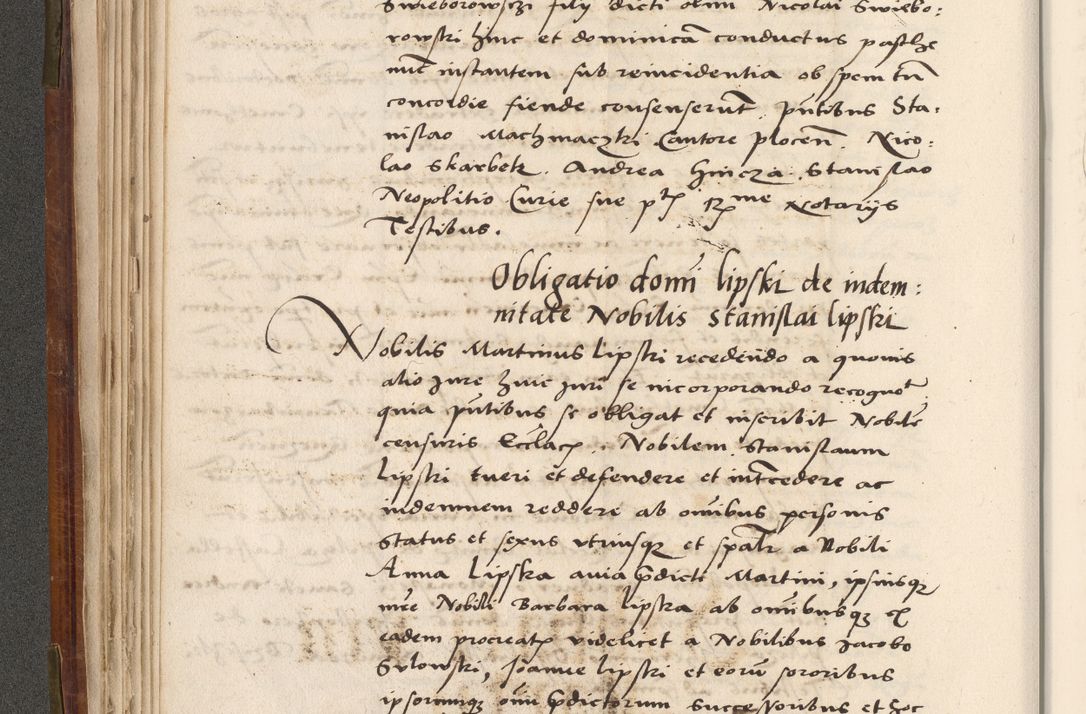 Swieborowsczi filij dicti olim Nicolai Swiebo:
rowski hinc et dominicā conductus paschę
nūc instantem sub reincidentia ob spem tñ
concordie fiende consenserūt. pñtibus Sta:
nislao Machmaczki Cantore plocen̄. Nico:
lao Skarbek. Andrea Hincza. Stanislao
Neopolitio Curie sue Notarijs
Testibus.
Obligatio domī lipski de indem:
nitate Nobilis Stanislai lipski
Nobilis Martinus Lipski recedēdo a quouis
alio jure huic juri se incorporando recognoᵗ
quia pñtibus se obligat et inscribit Nobilē
censuris Ecclꝛ. Nobilem Stanislaum
Lipski tueri et defendere et int̄cedere ac
indemnem reddere ab om̄ibus personis
status et sexus vtriusqꝫ et spālr a Nobili
Anna Lipska auia p̄dicti Martini, ipsiusqꝫ
mr̄e Nobili Barbara lipska ab om̄ibusqꝫ ex
eadem procreatꝭ videlicet a Nobilibus Jacobo
Sulowski, Joanne lipski et eorū sororibus
ipsorumqꝫ om̄i p̄dictorum successoribus et hoc